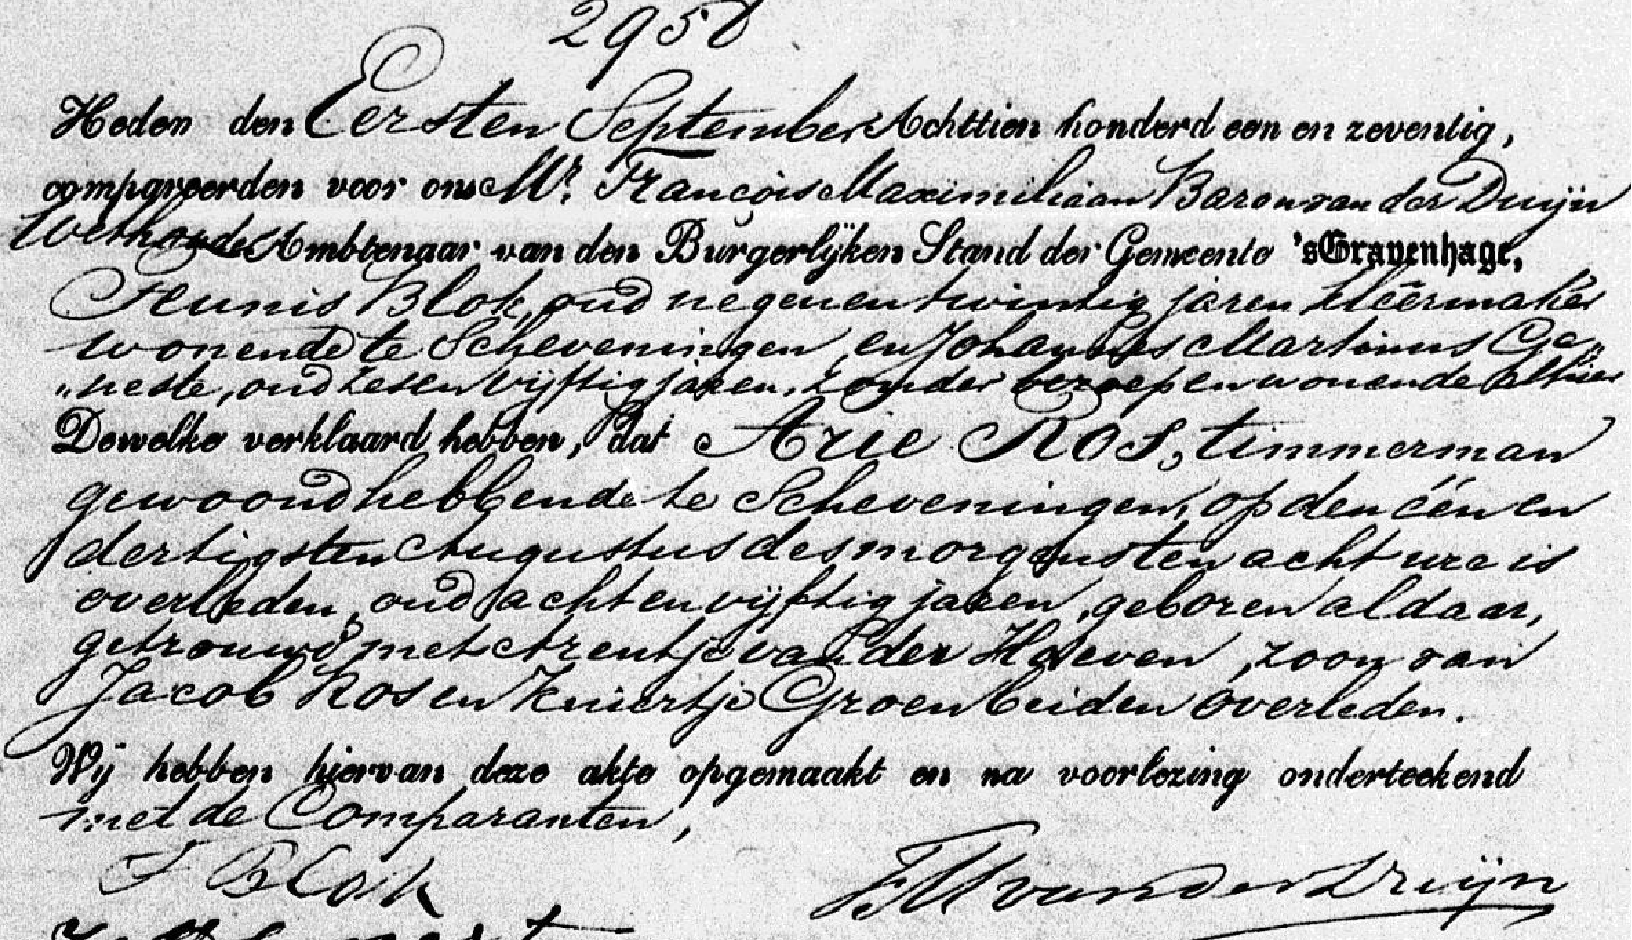 2958
Heden den Eersten September Achttien honderd een en zeventig,
compareerden voor ons Mr. François Maximiliaan Baron van der Duijn
Wethouder Ambtenaar van den Burgerlijken Stand der Gemeente 's Gravenhage,
Teunis Blok, oud negenentwintig jaren kleermaker
wonende te Scheveningen, en Johannes Martinus Ge„
„neste, oud zes en vijftig jaren, zonder beroep en wonende alhier
Dewelke verklaard hebben, dat Arie Ros, timmerman
gewoond hebbende te Scheveningen, op den één en
dertigsten Augustus des morgens ten acht ure is
overleden, oud acht en vijftig jaren, geboren aldaar,
getrouwd met Arentje van der Hoeven, zoon van
Jacob Ros en Kniertje Groen beiden overleden.
Wij hebben hiervan deze akte opgemaakt en na voorlezing onderteekend
met de Comparanten,
T Blok FM van der Duijn